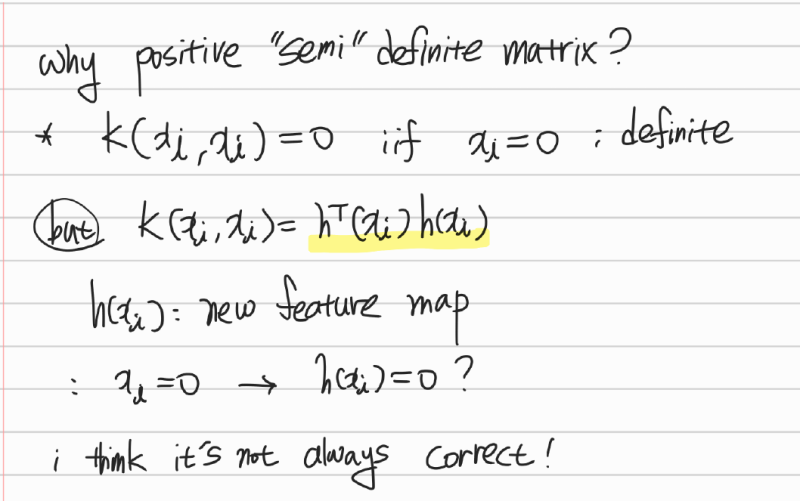 why positive "semi" definite matrix?
* k(xi, xi) = 0 iif xi = 0 : definite
but k(xi, xi) = hᵀ(xi) h(xi)
h(xi) : new feature map
: xi = 0 → h(xi) = 0 ?
i think it's not always correct!